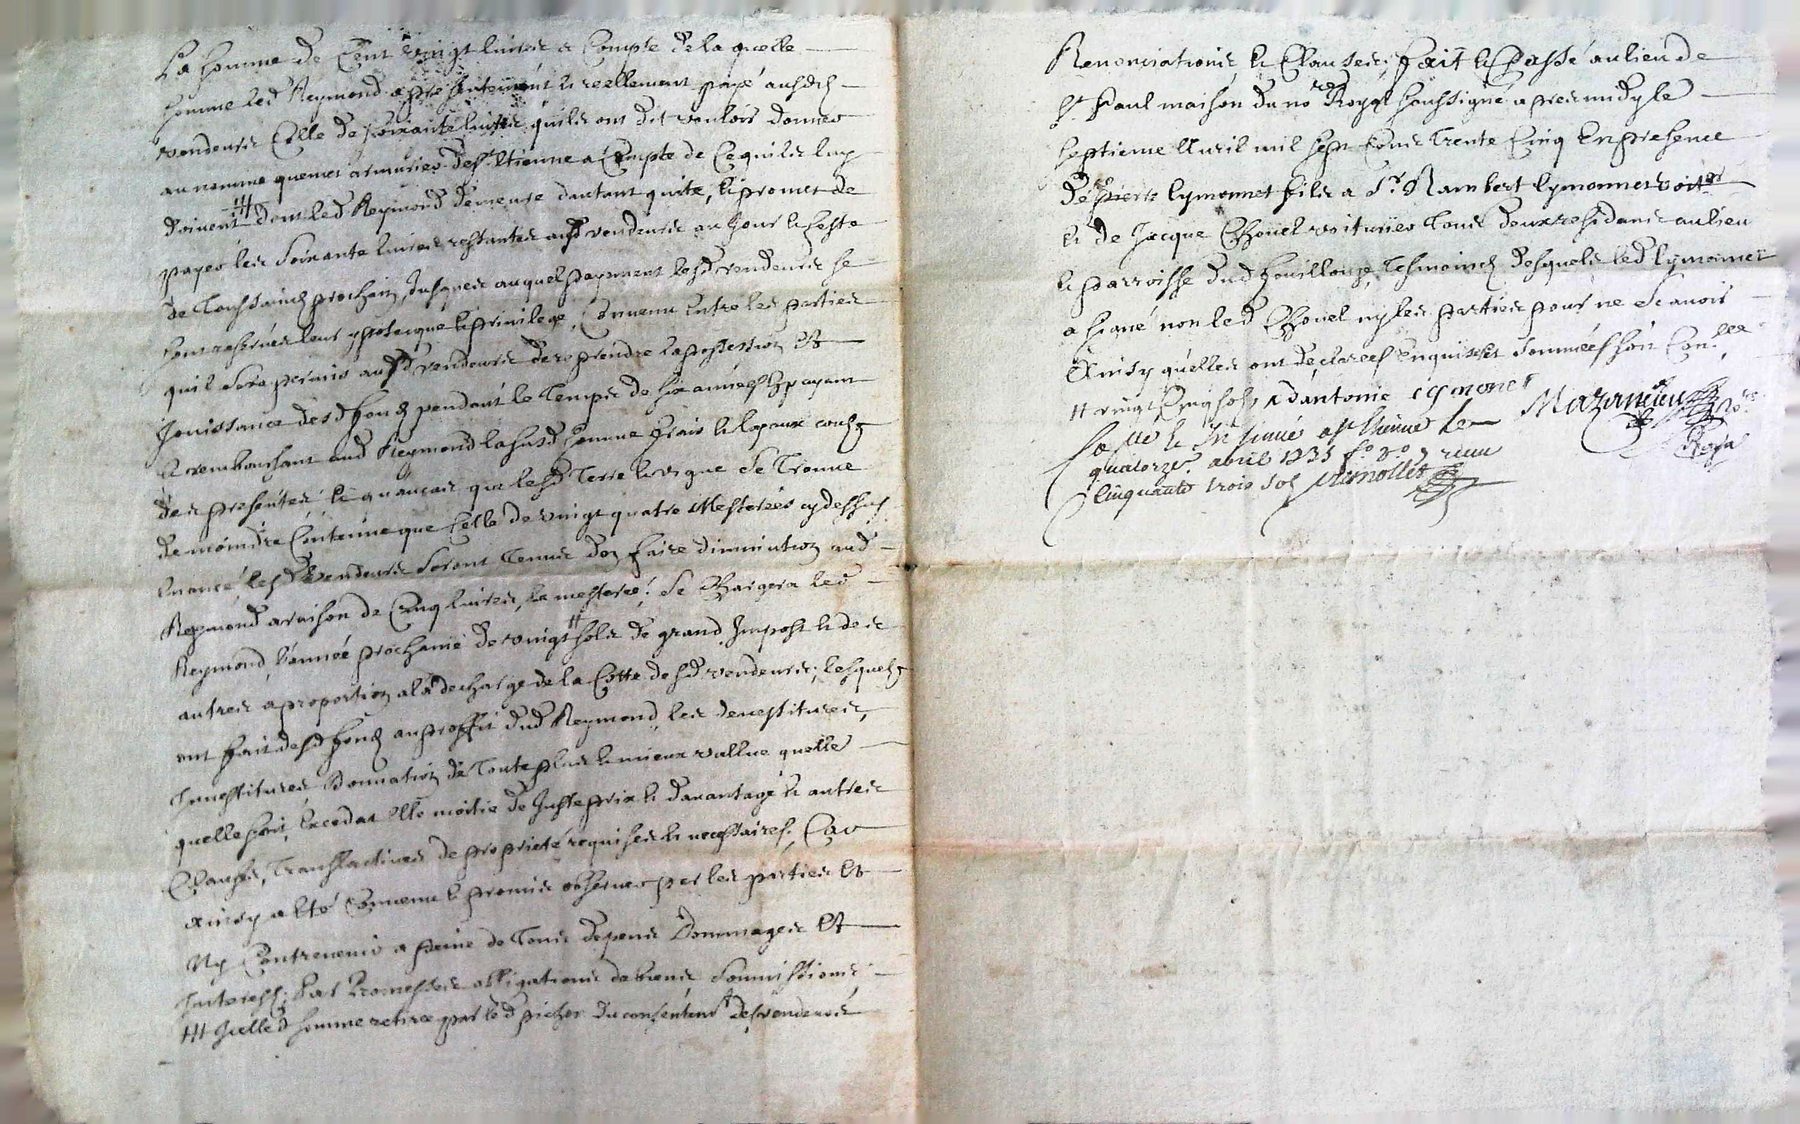 La somme de Cent vingt livres a Compte de la quelle
somme led Reymond a presentement et reellement payé ausds
vendeurs Celle de soixante livres quils ont dit vouloir donner
au nomme armurier de St Etienne a Compte de Ce quils luy
doivent dont led Reymond demeure dautant quite, et promet de
payer les Soixante livres restantes ausd vendeurs au jour et feste
de Toussaints prochain, Jusques auquel payement lesd vendeurs se
sont reservés leur ypotecque et privilege, Convenu Entre les parties
quil sera permis ausd vendeurs de reprendre la possession Et
Jouissance desd fonds pendant le Temps de six années En payant
Et remboursant aud Reymond la susd somme frais et loyaux couts
des presentes; Et quancas que lesd Terre et vigne Se Trouve
de moindre Contenue que Celle de vingt quatre Mesterées cy dessus
Enoncé, lesd Vendeurs Seront Tenus den faire diminution aud
Reymond a raison de Cinq livres, la mesterée. Se Chargera led
Reymond, l'année prochaine de vingt sols de grand Impost et des
autres a proportion a la decharge de la Cotte desd vendeurs; lesquels
ont fait desd fonds au proffit dud Reymond, les devestitures,
Investitures Donnation de Toute plus et mieux vallue quelle
quelle soit, Excedat Elle moitie de Juste prix et davantage et autres
Clauses, Translatives de proprieté requises et necessaires. Car
Ainsy a Eté Convenu et promis observer par les parties Et
Ny Contrevenir a peine de Tous depens Dommages Et
Interests; Par Promesses obligations de biens, Soumissions,
Icelle d somme retiree par led du consentent desd vendeurs
Renonciations et Clauses; fait et Passé au lieu de
St Paul maison du nore Royal soussigné apres midy le
septieme Avril mil sept Cens Trente Cinq En presence
de Sr Pierre lymonnet fils a Sr Rambert lymonnet
et de Jacque Chovel voiturier Tous deux residans au lieu
et parroisse dud fouillouze, Tesmoins desquels led lymonnet
a signé non led Chovel ny les parties pour ne Scavoir
Ainsy quelles ont declarees Enquises et Sommées soit Con.lle
vingt Cinq sols
quatorze abril 1735
Cinquante trois sols